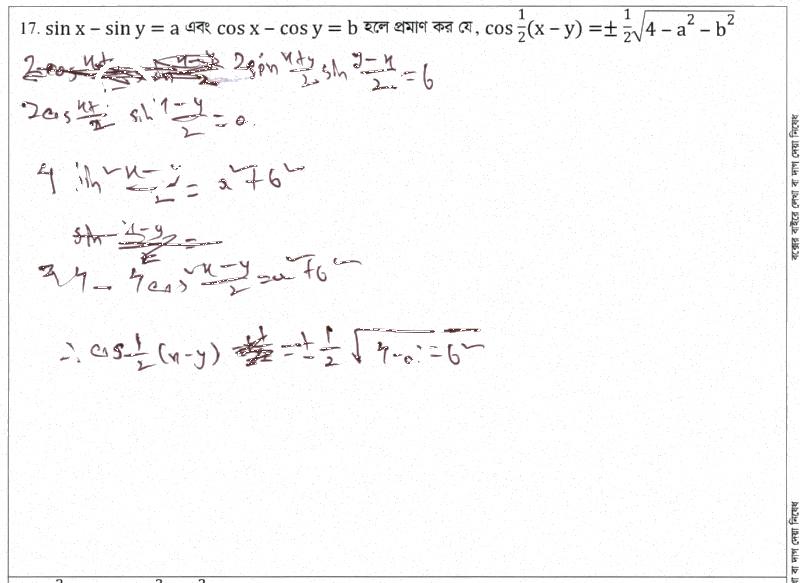 17. sin x – sin y = a এবং cos x – cos y = b হলে প্রমাণ কর যে, cos ½(x – y) = ± ½√(4 – a² – b²)
2 sin (x+y)/2 sin (y-x)/2 = b
2 cos (x+y)/2 sin (x-y)/2 = a
4 sin² (x-y)/2 = a² + b²
4 - 4 cos² (x-y)/2 = a² + b²
∴ cos ½ (x-y) = ± ½ √(4-a²-b²)
বক্সের বাইরে লেখা বা দাগ দেয়া নিষেধ
বা দাগ দেয়া নিষেধ